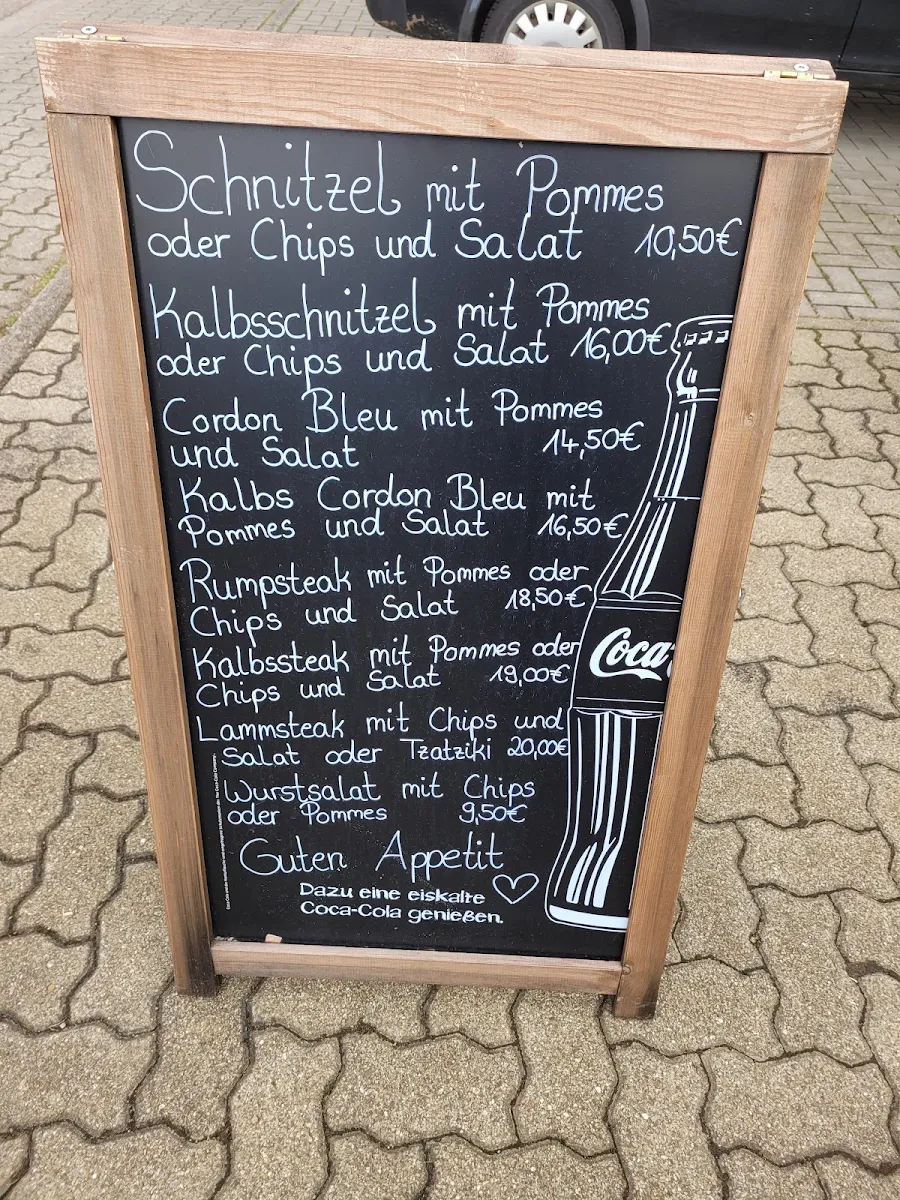 Schnitzel mit Pommes
oder Chips und Salat 10,50€
Kalbsschnitzel mit Pommes
oder Chips und Salat 16,00€
Cordon Bleu mit Pommes
und Salat 14,50€
Kalbs Cordon Bleu mit
Pommes und Salat 16,50€
Rumpsteak mit Pommes oder
Chips und Salat 18,50€
Kalbssteak mit Pommes oder
Chips und Salat 19,00€
Lammsteak mit Chips und
Salat oder Tzatziki 20,00€
Wurstsalat mit Chips
oder Pommes 9,50€
Guten Appetit
Dazu eine eiskalte
Coca-Cola genießen.
Coca